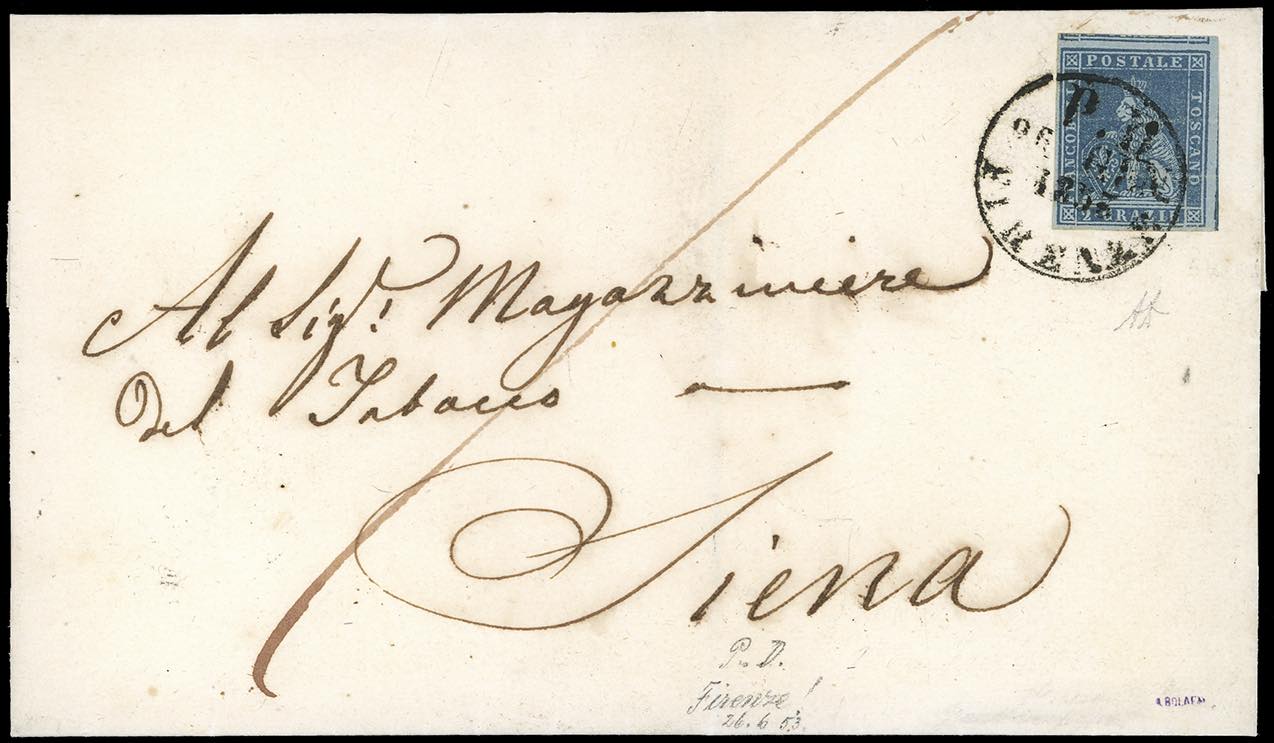 POSTALE
TOSCANO
P. D.
26
18
FIRENZE
Al Sigr. Magazziniere
Del Tabacco
Siena
P. D.
Firenze!
26.6 53